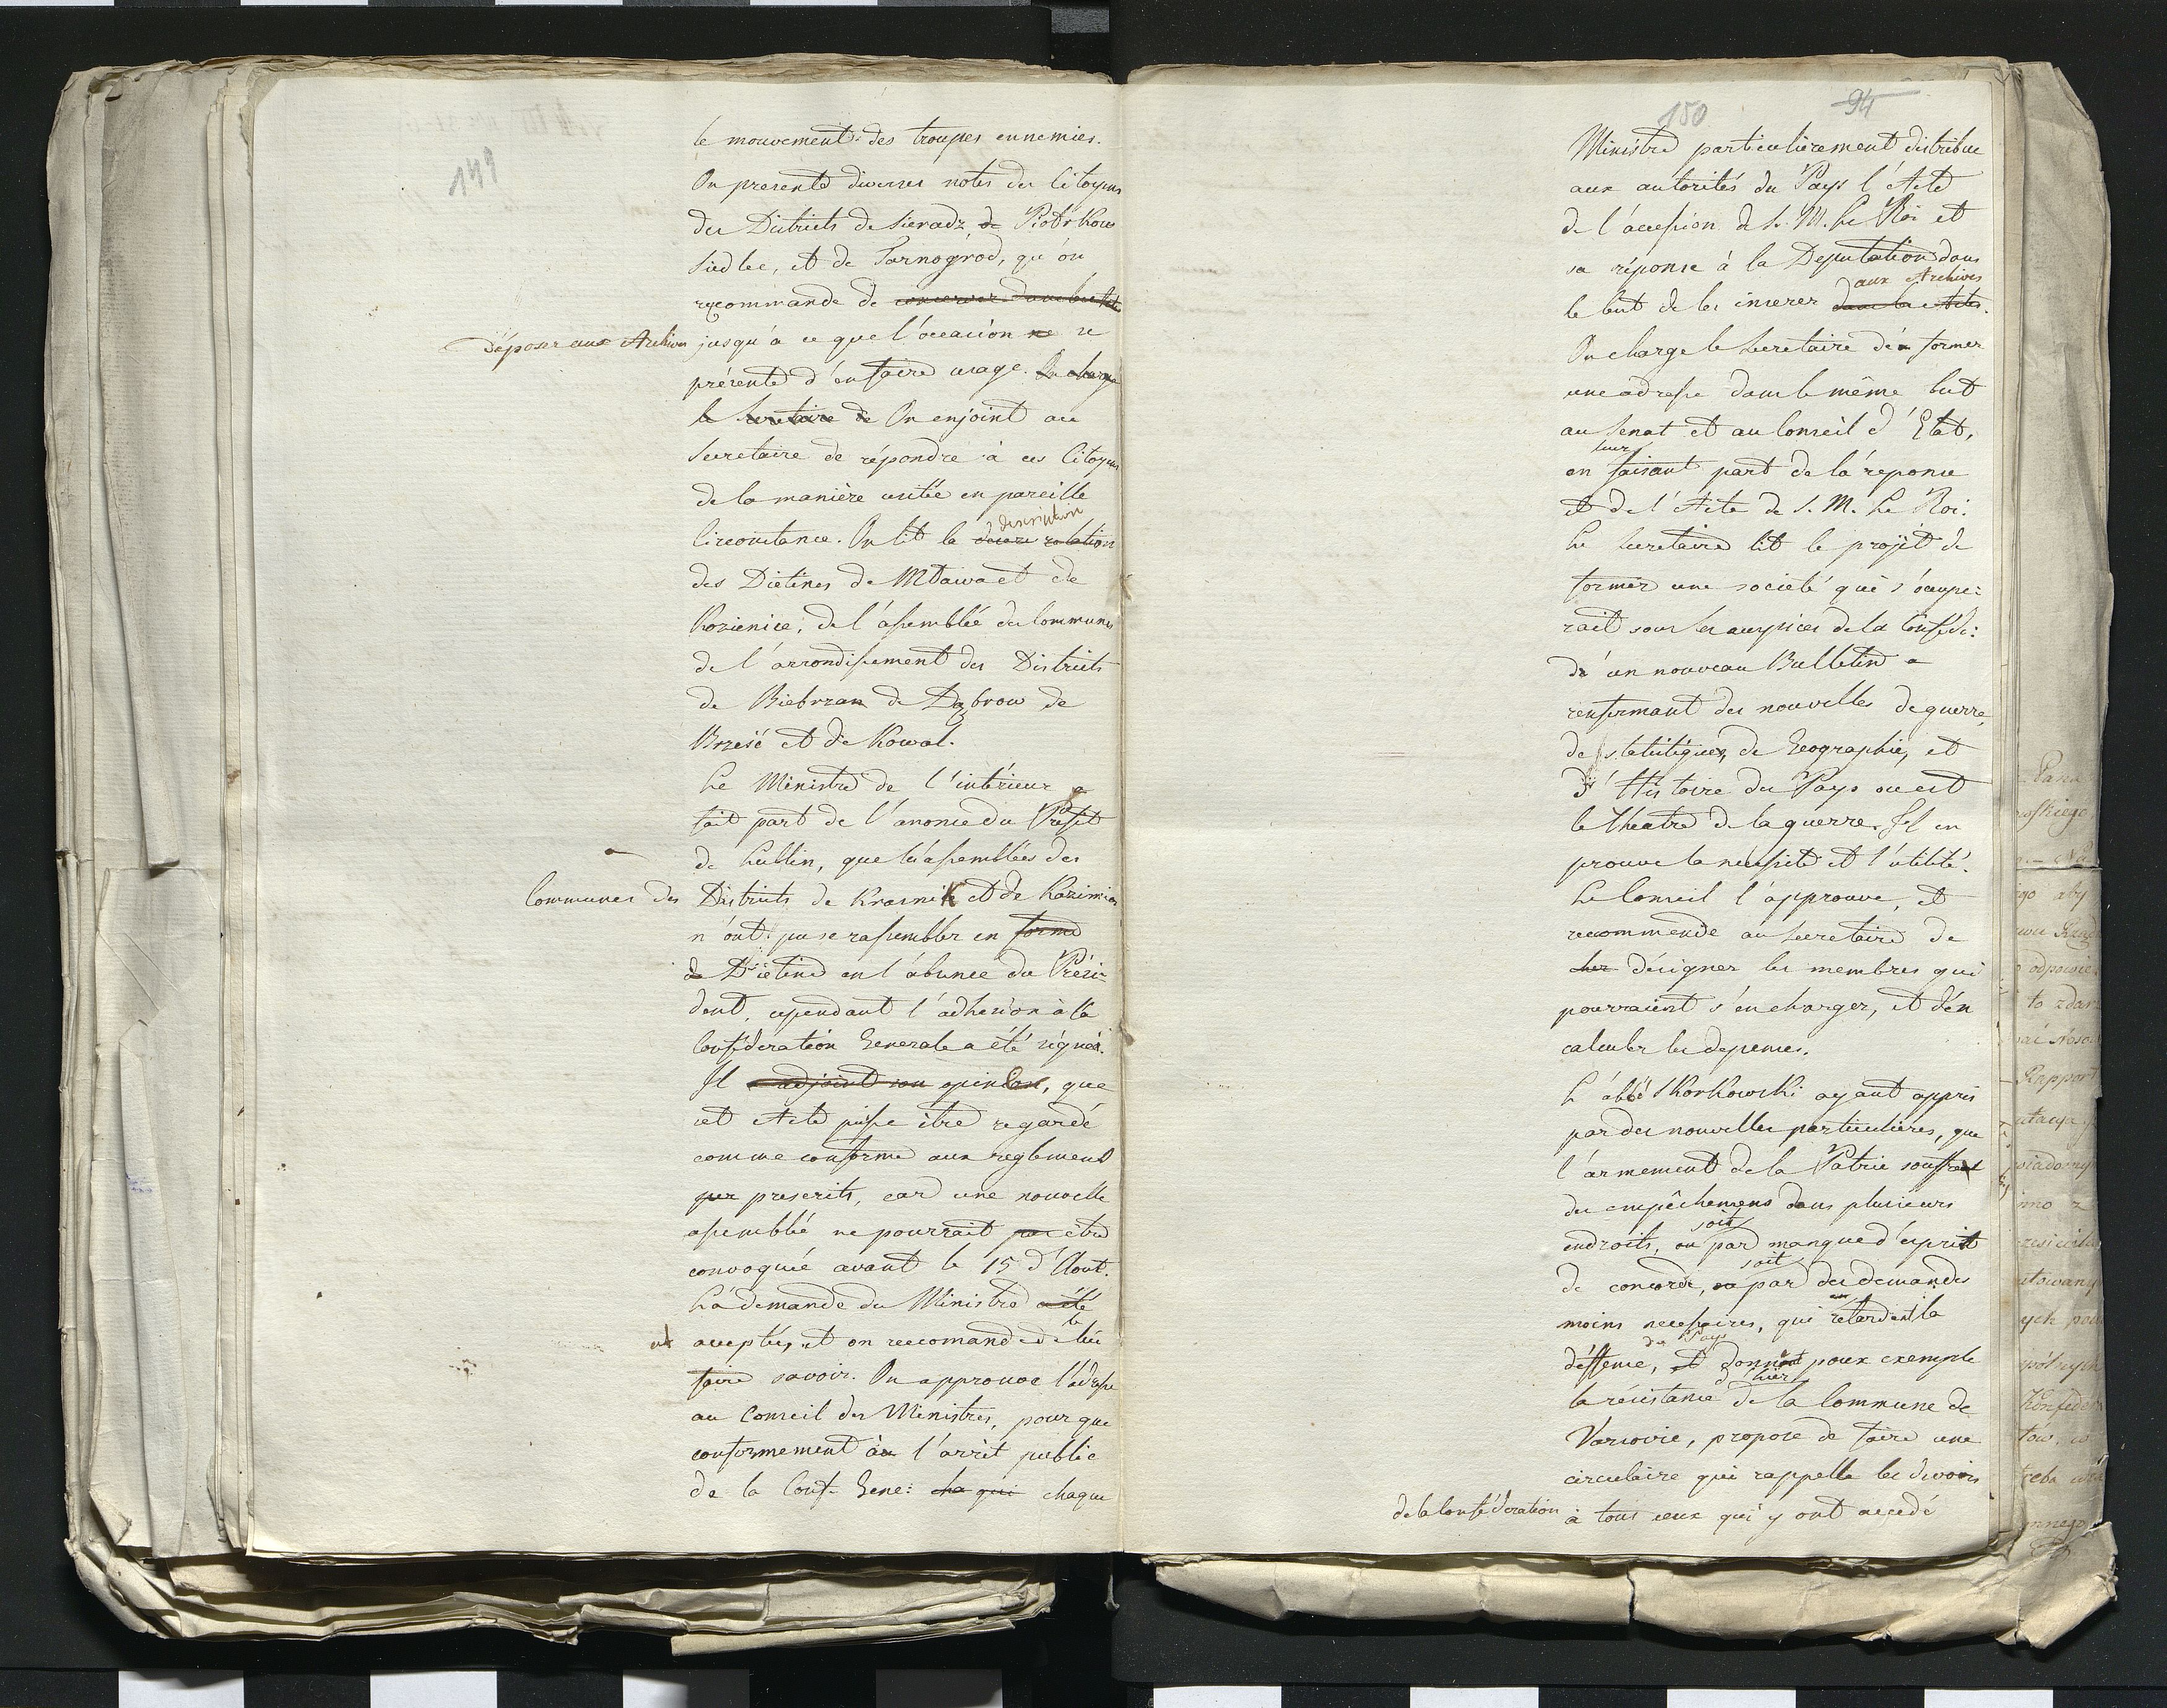 149
le mouvement des troupes ennemies.
On presente diverses notes des Citoyens
des Districts de Sieradz, de Piotrkow
Siedlec, et de Tarnogród, qu'on
recommande de conserver dans les Actes
déposer aux Archives jusqu'à ce que l'occasion ne se
présente d'en faire usage. On charge
le Secretaire de On enjoint au
Secretaire de répondre à ces Citoyens
de la manière usitée en pareille
description
Circonstance. On lit la relation
des Diètines de Mława et de
Kozienice, de l'assemblée des Communes
de l'arrondissement des Districts
de Biebrzan de Dąbrow de
Brześć et de Kowal.
Le Ministre de l'intérieur a
fait part de l'anonce du Prefet
de Lublin, que les assemblées des
Communes des Districts de Krasnik et de Kazimier
n'ont pu se rassembler en forme
de Diètine en l'absence du Prési-
dent, cependant l'adhesion à la
Confédération Generale a été signée.
Il adjoint son opinion, que
cet Acte puisse être regardé
comme conforme aux reglemens
par prescrits, car une nouvelle
assemblée ne pourrait pas être
convoquée avant le 15 d'Aout.
La demande du Ministre a été
le
est acceptée, et on recomande de lui
faire savoir. On approuve l'adresse
au Conseil des Ministres, pour que
conformement à l'arrêt public
de la Conf. Gene: chaque
150
94
Ministre particulièrement distribue
aux autorités du Pays l'Acte
de l'accession de S. M. Le Roi et
sa réponse à la Deputation dans
aux Archives
le but de les inserer dans les Actes.
On charge le Secretaire d'en former
une adresse dans le même but
au Senat et au Conseil d'Etat,
leur
en faisant part de la réponse
et de l'Acte de S. M. Le Roi.
Le Secretaire lit le projèt de
former une societé qui s'occupe:
rait sous les auspices de la Confédé:
d'un nouveau Bulletin
renfermant des nouvelles de guerre,
de statistiques, de Geographie, et
d'Histoire du Pays ou est
le Theatre de la guerre. Il en
prouve la necessité et l'utilité.
Le Conseil l'approuve, et
recommende au Secretaire de
cher désigner les membres qui
pourraient s'en charger, et d'en
calculer les depenses.
L'abbé Skorkowski ayant appris
par des nouvelles particulières, que
l'armement de la Patrie souffre
des empêchemens dans plusieurs
soit
endroits, ou par manque d'esprit
soit
de concorde, ou par des demandes
moins necessaires, qui retardent la
du Pays
déffense, et donnant pour exemple
d'hier
la résistance de la Commune de
Varsovie, propose de faire une
circulaire qui rappelle les devoirs
de la Confédération à tous ceux qui y ont accedé